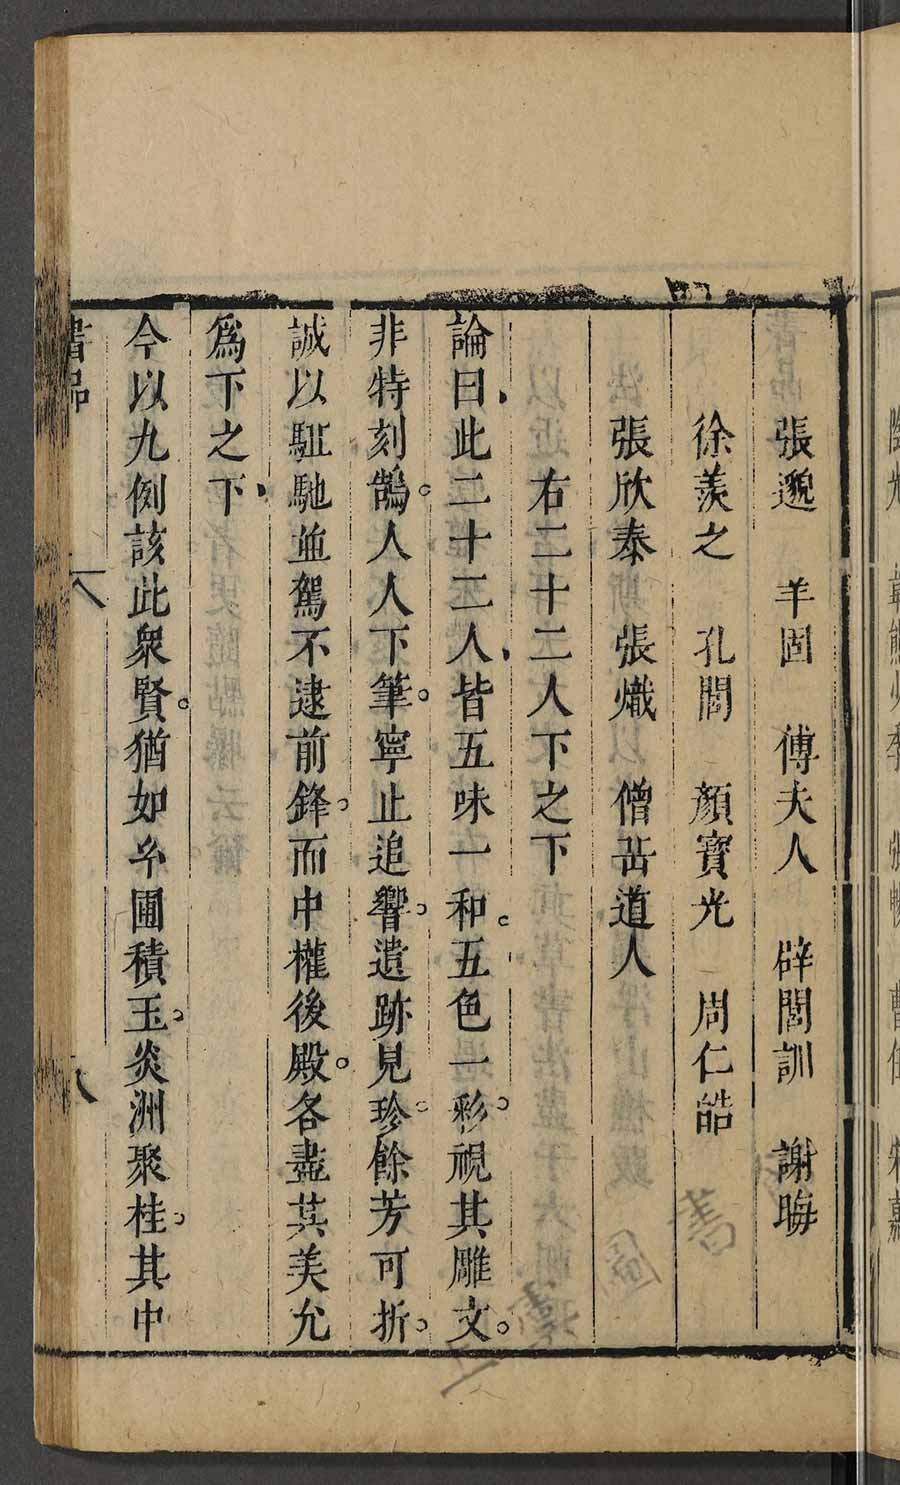 張邈　羊固　傅夫人　辟閭訓　謝晦
徐羨之　孔閭　顏寶光　周仁皓
張欣泰　張熾　僧岳道人
右二十二人下之下
論曰此二十二人皆五味一和五色一彩視其雕文
非特刻鵠人人下筆寧止追響遺跡見珍餘芳可折
誠以駈馳並駕不逮前鋒而中權後殿各盡其美允
爲下之下
今以九例該此衆賢猶如玄圃積玉炎洲聚桂其中
書品
八